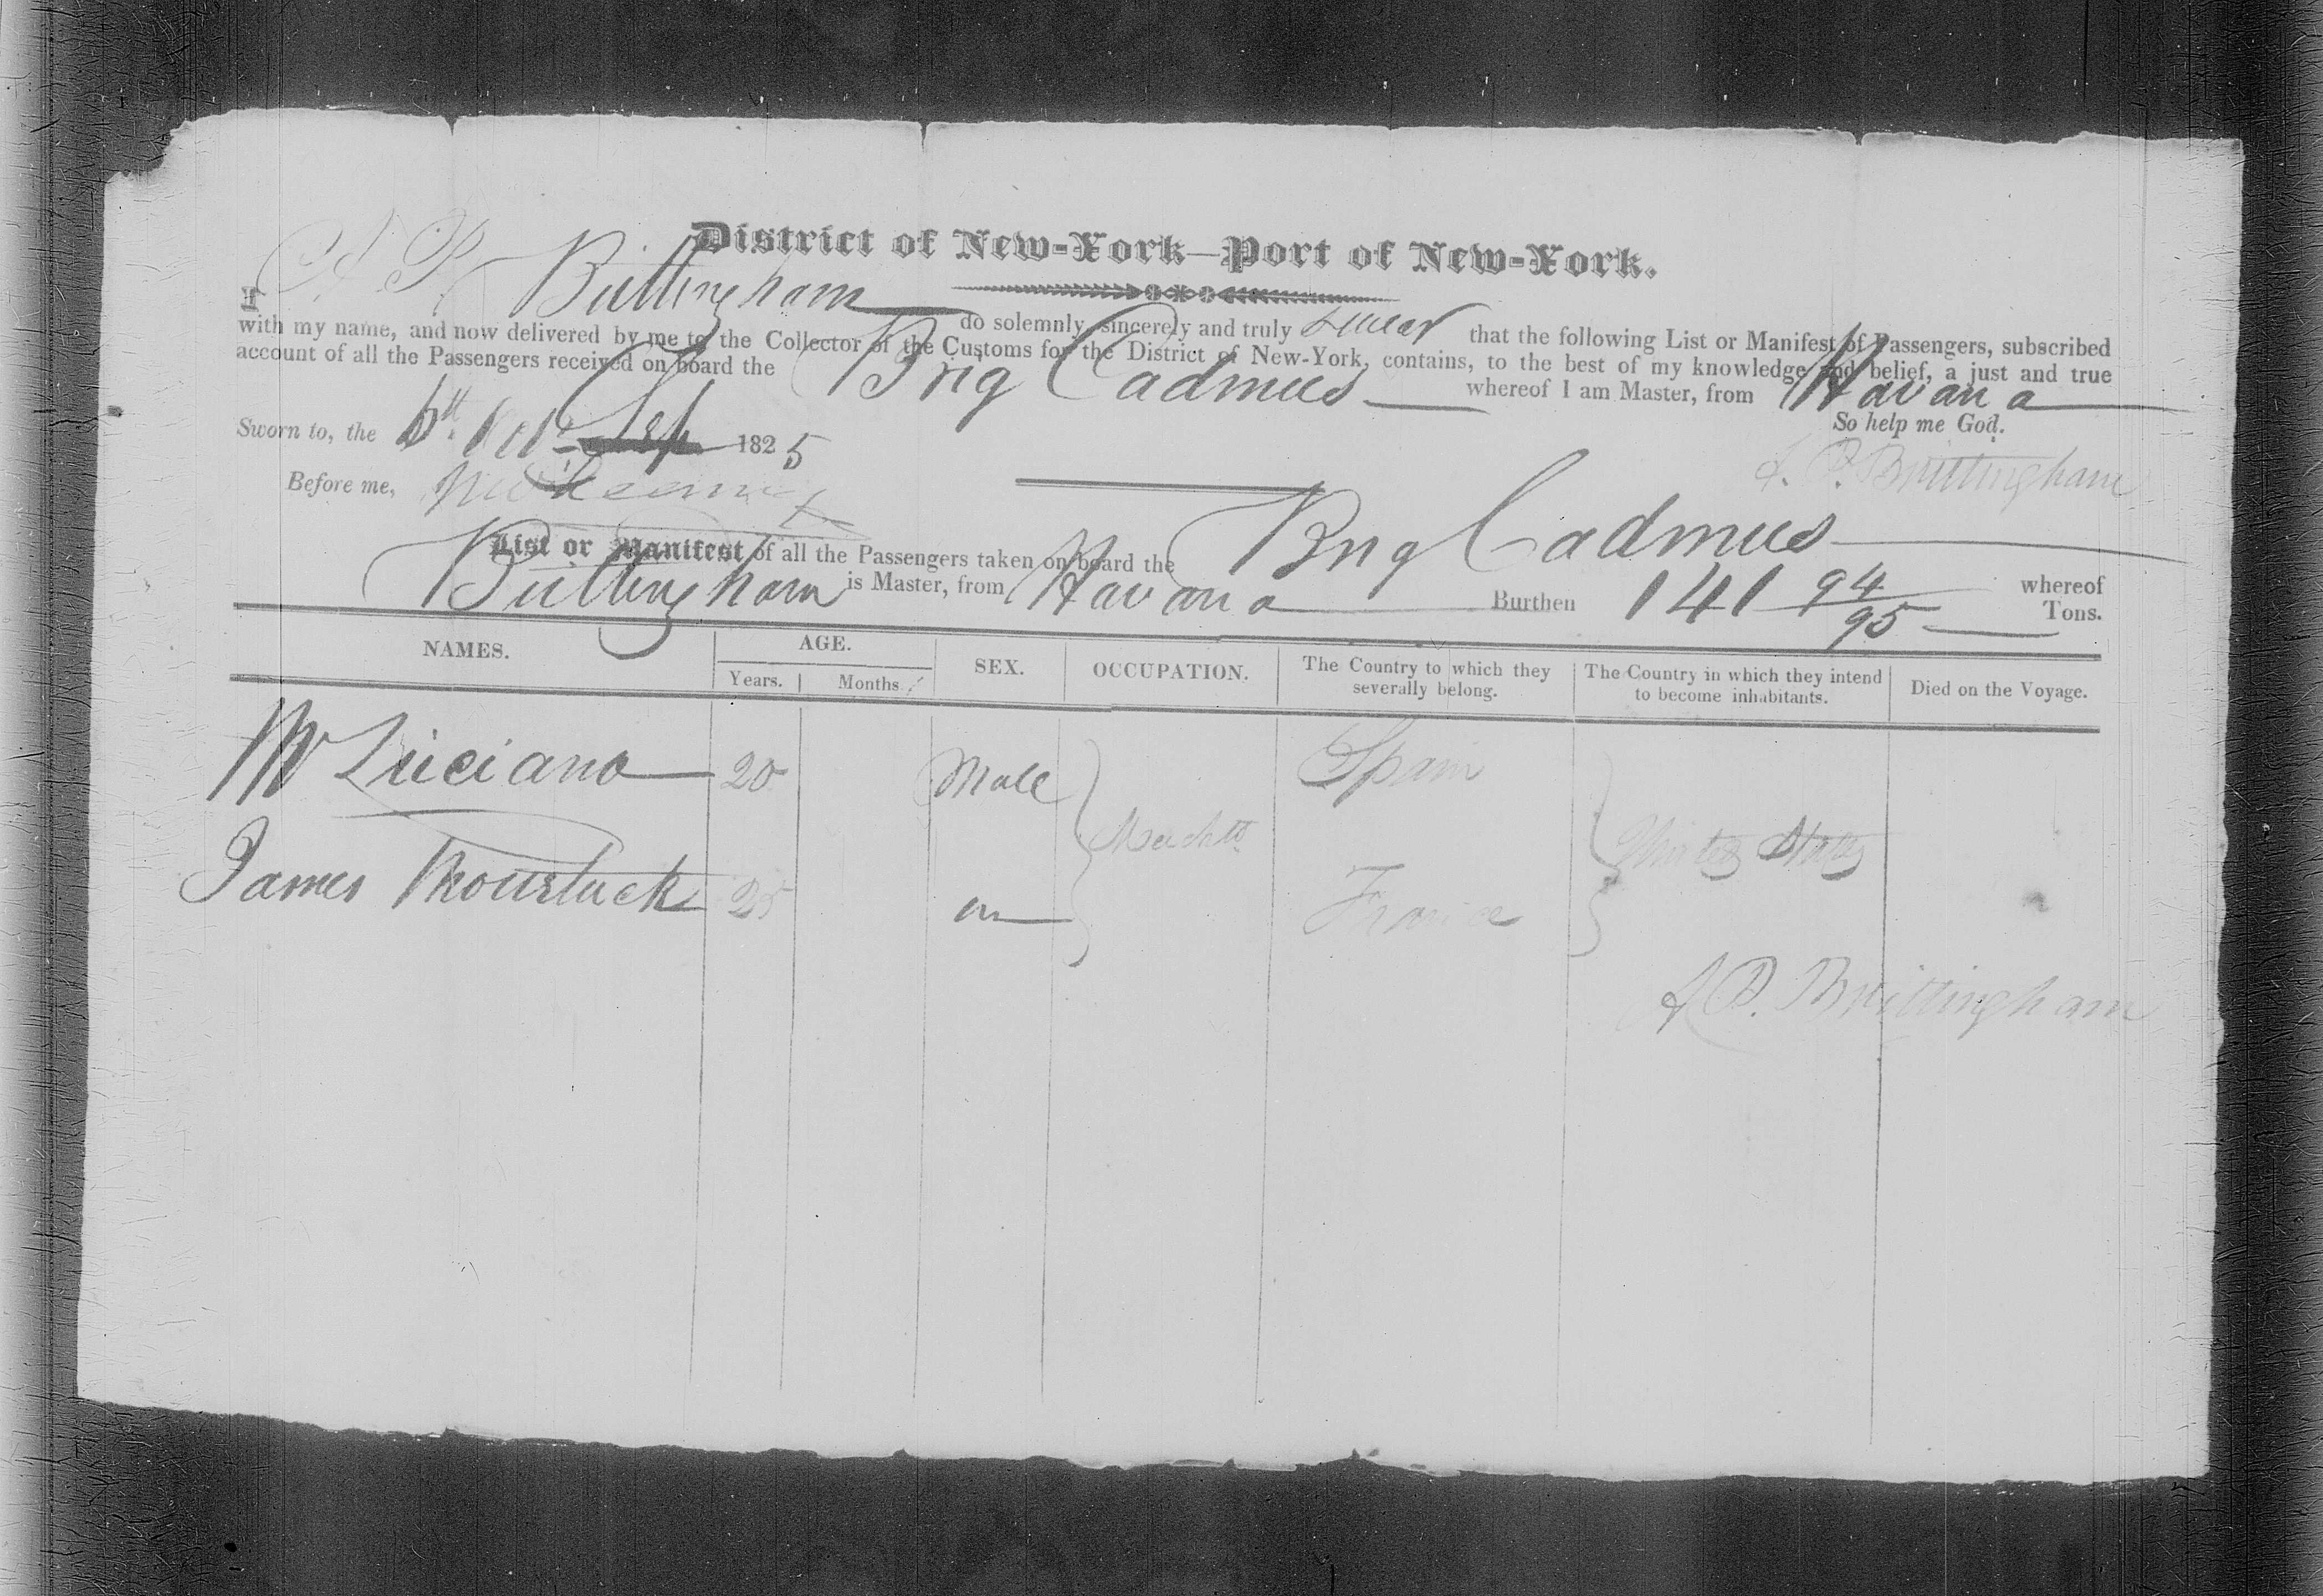 District of New-York—Port of New-York.
I A P Bullingham do solemnly, sincerely and truly swear that the following List or Manifest of Passengers, subscribed
with my name, and now delivered by me to the Collector of the Customs for the District of New-York, contains, to the best of my knowledge and belief, a just and true
account of all the Passengers received on board the Brig Cadmus whereof I am Master, from Havana
So help me God.
Sworn to, the 6th Oct 1825
A. P. Brittingham
Before me,
List or Manifest of all the Passengers taken on board the Brig Cadmus whereof
Bullingham is Master, from Havana Burthen 141 94/95 Tons.
NAMES. AGE. SEX. OCCUPATION. The Country to which they severally belong. The Country in which they intend to become inhabitants. Died on the Voyage.
Years. Months
Mr Luciano 20 Male Spain
Merchts United States
James 25 France
A P. Brittingham